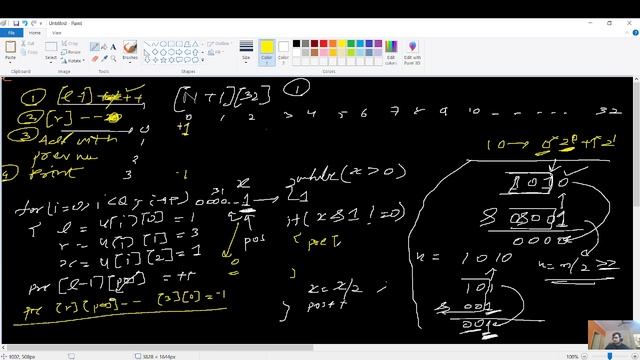 Untitled - Paint
File Home View
Paste
Cut
Copy
Select
Crop
Resize
Rotate
Brushes
Shapes
Outline
Fill
Size
Color 1
Color 2
Edit colors
Edit with Paint 3D
Clipboard
Image
Tools
Colors
① [l-1] ++
[N+1][32]
①
② [r] --
0 1 2 3 4 5 6 7 8 9 10 - - - - - 32
+1
③ Add with
previous
④ Print
0
1
2
3
-1
10 → 0*2^0 + 1*2^1
for(i=0; i<Q; i++)
{ l = u[i][0] = 1
r = u[i][1] = 3
x = u[i][2] = 1
pre [l-1][pos] = ++
pre [r][pos] -- [3][0] = -1
31
x
0000..1 → 1
pos
0
while(x>0)
{
if(x & 1 != 0)
{ pre[
}
x = x/2
pos++
}
1010
& 0001
0000
n = 1010
n = n/2 >>
101
& 001
001
1002, 508px
3828 × 1644px
100%